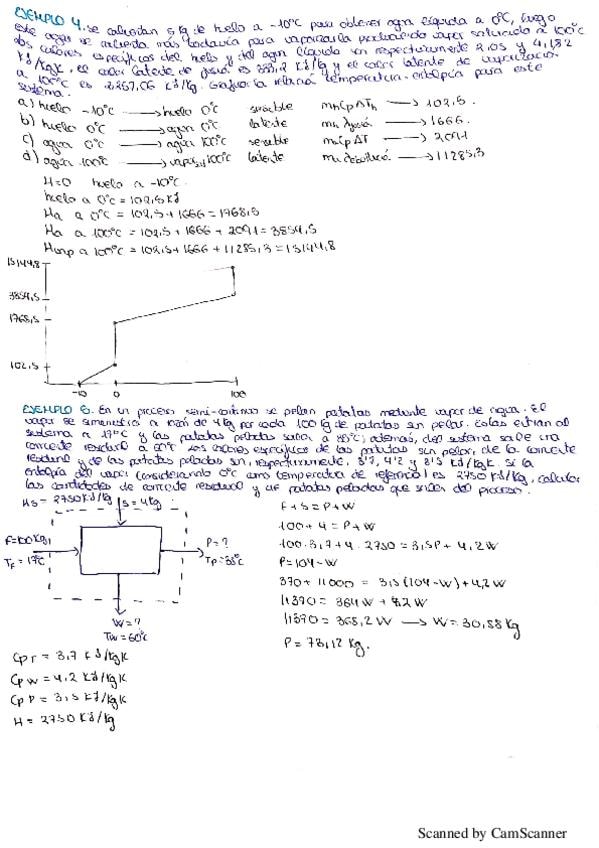 EJEMPLO 4. Se calientan 5 kg de hielo a -10°C para obtener agua líquida a 0°C, luego
este agua se calienta más todavía para vaporizarla produciendo vapor saturado a 100°C
los calores específicos del hielo y del agua líquida son respectivamente 2,05 y 4,182
KJ/KgK, el calor latente de fusión es 333,2 KJ/kg y el calor latente de vaporización
a 100°C es 2257,06 KJ/Kg. Grafica la relación temperatura-entalpía para este
sistema.
a) hielo -10°C → hielo 0°C sensible mhCpΔTh → 102,5.
b) hielo 0°C → agua 0°C latente mh λfusió → 1666.
c) agua 0°C → agua 100°C sensible mCpΔT → 2091
d) agua 100°C → vapor 100°C latente m → 11285,3
H=0 hielo a -10°C.
hielo a 0°C = 102,5 KJ
Ha a 0°C = 102,5 + 1666 = 1768,5
Ha a 100°C = 102,5 + 1666 + 2091 = 3859,5
Hvap a 100°C = 102,5 + 1666 + 11285,3 = 15144,8
15144,8
3859,5
1768,5
102,5
-10 0 100
EJEMPLO 5. En un proceso semi-continuo se pelan patatas mediante vapor de agua. El
vapor se suministra a razón de 4 kg por cada 100 kg de patatas sin pelar. Estas entran al
sistema a 17°C y las patatas peladas salen a 35°C; además, del sistema sale una
corriente residual a 60°C. Los calores específicos de las patatas sin pelar, de la corriente
residual y de las patatas peladas son, respectivamente, 3'7, 4'2 y 3'5 KJ/kgK. Si la
entalpía del vapor (considerando 0°C como temperatura de referencia) es 2750 KJ/kg, calcular
las cantidades de corriente residual y de patatas peladas que salen del proceso.
Hs = 2750 KJ/kg S = 4kg
F=100Kg
TF = 17°C
P = ?
Tp = 35°C
W = ?
Tw = 60°C
Cp F = 3,7 KJ/kgK
Cp W = 4,2 KJ/kgK
Cp P = 3,5 KJ/kgK
H = 2750 KJ/kg
F + S = P + W
100 + 4 = P + W
100·3,7 + 4·2750 = 3,5P + 4,2W
P = 104 - W
370 + 11000 = 3,5 (104-W) + 4,2W
11370 = 364W + 4,2W
11370 = 368,2W → W = 30,88 Kg
P = 73,12 Kg.
Scanned by CamScanner